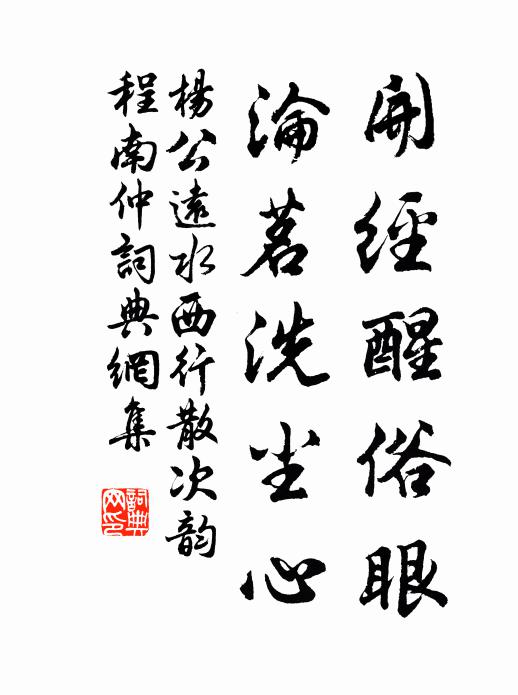 開經醒俗眼
瀹茗洗尘心
楊公遠水西行散次韵
程南仲詞典網集
詞典网印